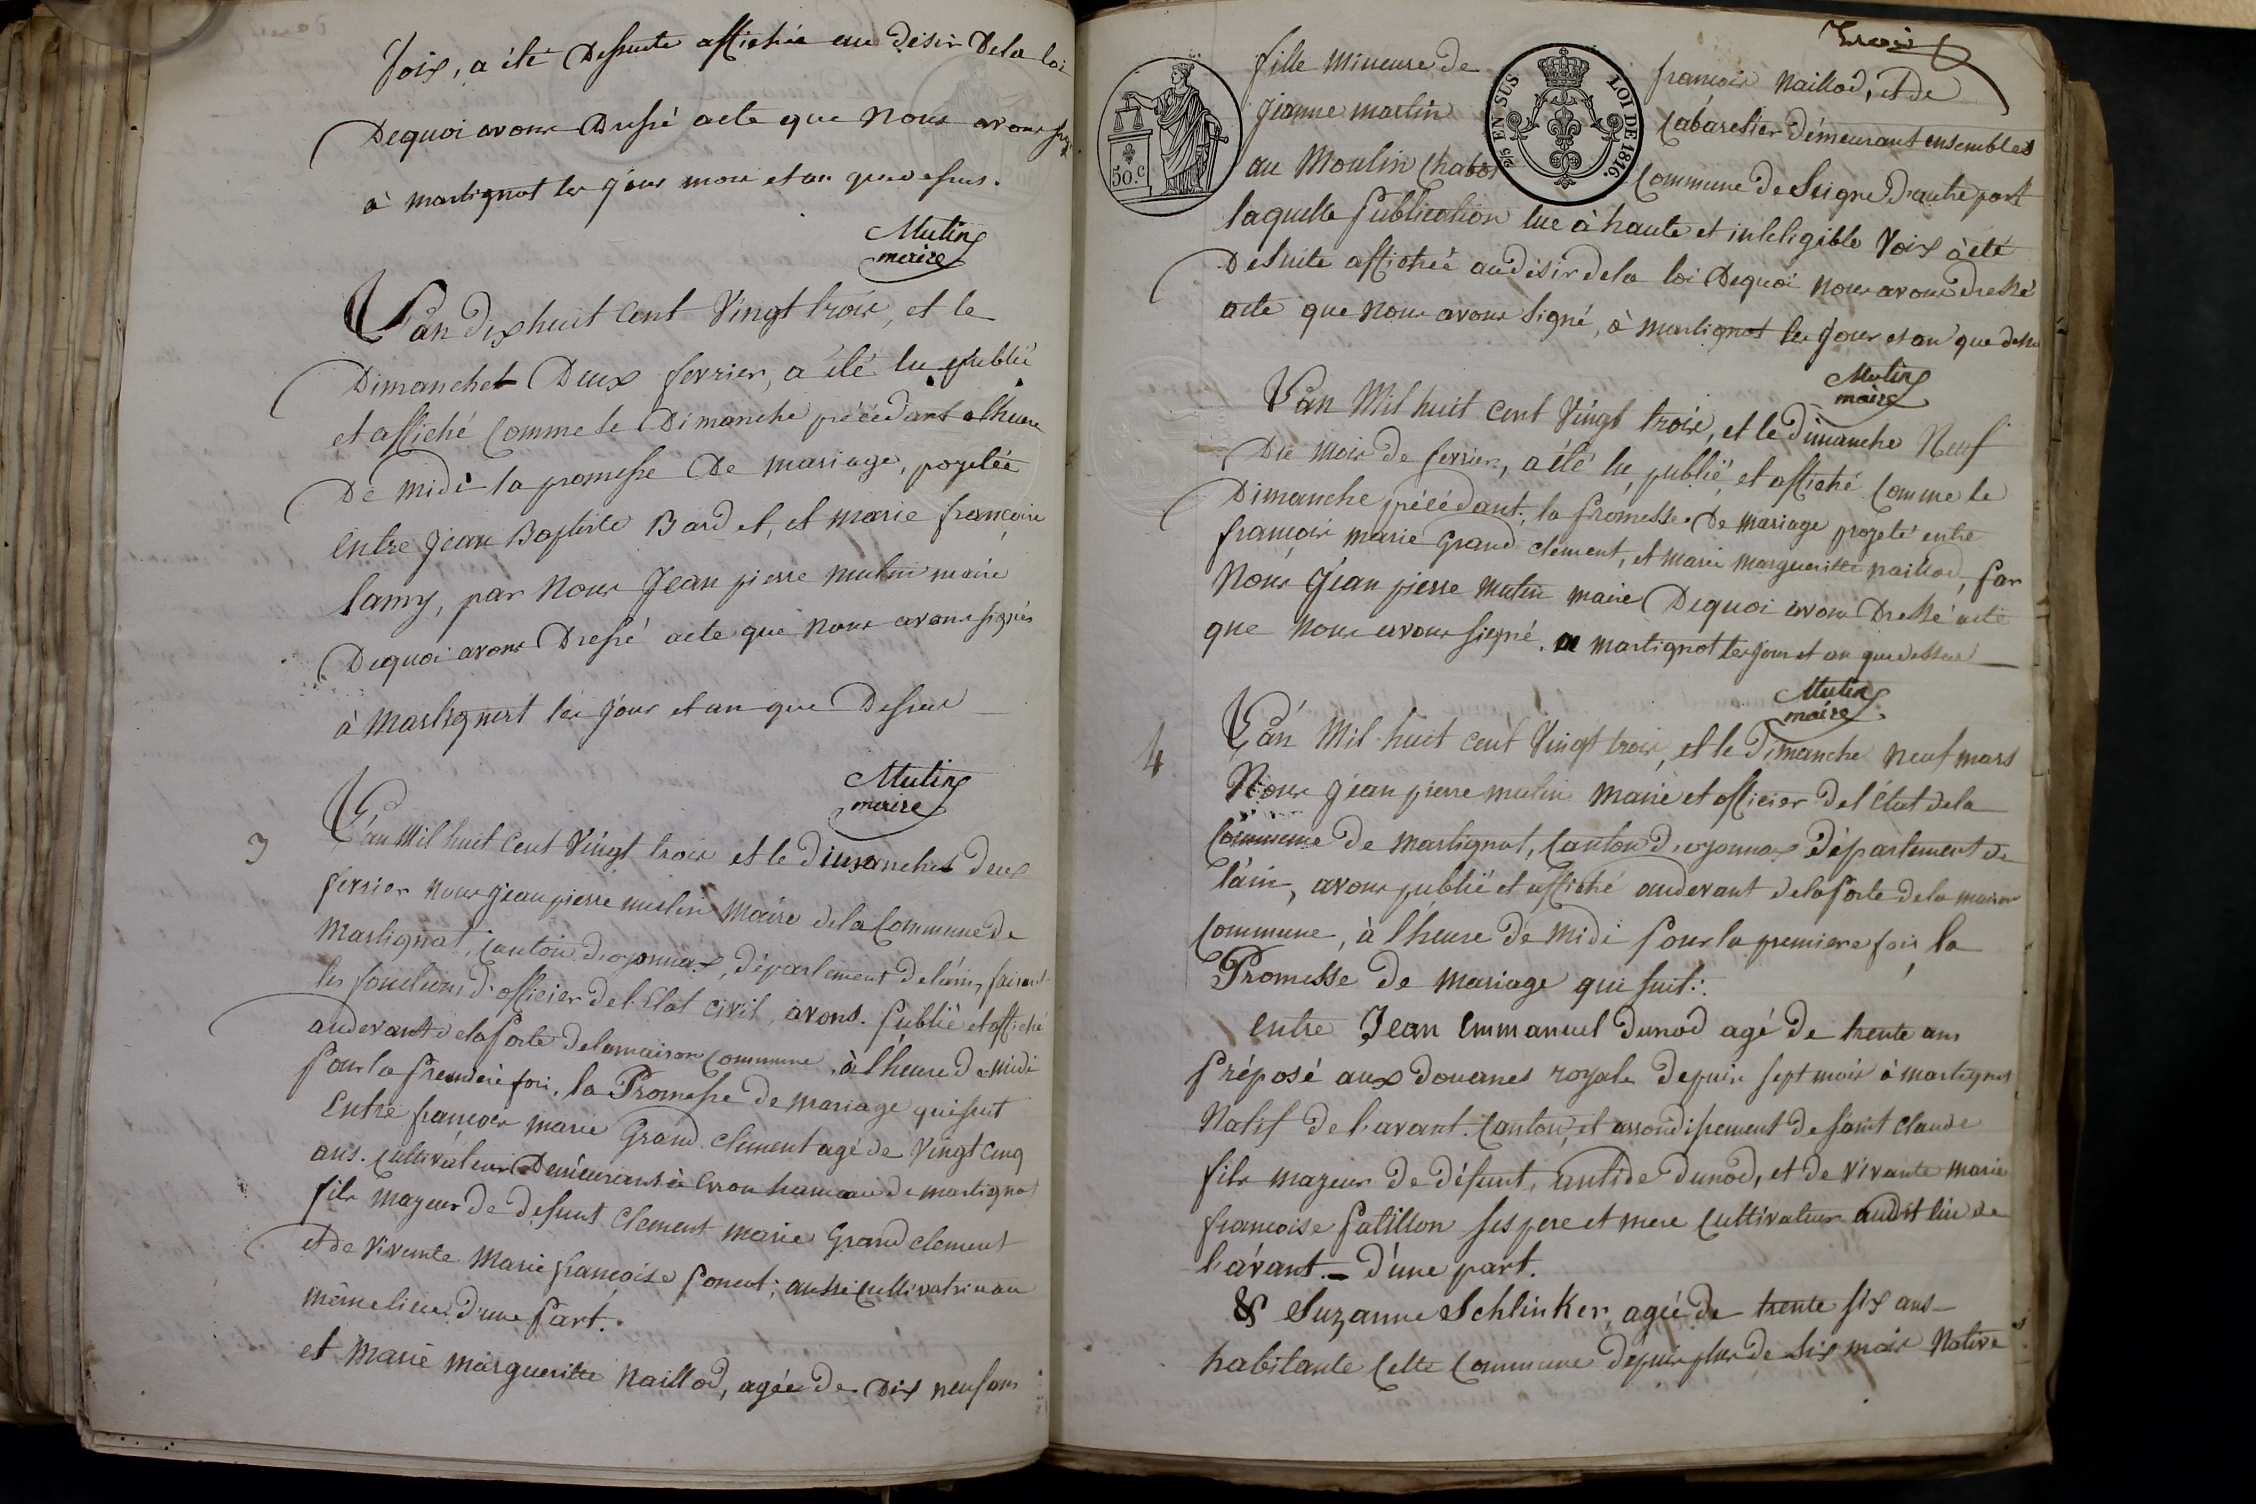 foix, a été Desuite affichée au désir Dela loi
Dequoi avons Dressé acte que Nous avons signé
à martignat les jour mois et an que dessus.
Mutin
maire
L'an Dix huit Cent Vingt trois, et le
Dimanchet Deux fevrier, a été lu publié
et affiché Comme le Dimanche précédant a lheure
De midi la promesse De mariage, projetée
Entre Jean Baptiste Bardet, et marie françoise
lamy, par Nous Jean pierre mutin maire
Dequoi avons Dressé acte que nous avons signés
à Martignat les jour et an que Dessus
Mutin
maire
3
L'an Mil huit Cent Vingt trois et le dimanches deux
fevrier nous Jean pierre mutin Maire dela Commune de
Martignat, Canton d'oyonnax, département de l'ain, faisant
les fonctions d'officier de l'Etat Civil, avons. publié et affiché
audevant dela porte delamaison Commune, à l'heure de midi
pour la premiere fois, la Promesse de mariage qui suit
Entre françois marie Grand Clement agé de Vingt Cinq
ans. Cultivateur Demeurant à Evron hameau de martignat
fils majeur de defunt Clement marie Grand clement
et de vivante Marie françoise poncet; aussi Cultivatrice au
même lieu d'une part.
et Marie margueritte Naillod, agée de Dix neuf ans
Trois
fille Mineure de françois Naillod, et de
Jeanne martin Cabaretier démeurant ensembles
au Moulin Chabot Commune de Seigne D'autre part
50.c
25 EN SUS
LOI DE 1816.
laquelle publication lue à haute et inteligible Voix à été
Desuite affichée au désir dela loi Dequoi nous avons dressé
acte que nous avons signé, à martignat les jour et an que dessus
Mutin
maire
L'an Mil huit Cent Vingt trois, et le dimanche Neuf
Du mois de fevrier, a été lu, publié et affiché Comme le
Dimanche précédant, la promesse De mariage projeté entre
françois marie Grand clement, et marie margueritte naillod, par
Nous Jean pierre Mutin maire Dequoi avons Dressé acte
que nous avons signé. a martignat les jour et an que dessus
Mutin
maire
4
L'an Mil huit cent Vingt trois, et le Dimanche neuf mars
Nous Jean pierre mutin Maire et officier del'état dela
Commune de martignat, Canton d'oyonnax département de
l'ain, avons publié et affiché audevant dela porte dela maison
Commune, à lheure de Midi pour la premiere fois, la
Promesse de mariage qui suit:
entre Jean Emmanuel dunod agé de trente ans
préposé aux douanes royale depuis sept mois à martignat
Natif de lavant. Canton, et arrondissement de saint Claude
fils majeur de défunt, antide dunod, et de vivante marie
françoise patillon ses pere et mere Cultivateur audit lieu de
lavant. - d'une part.
& Suzanne Schlinker, agée de trente six ans
habitante Cette Commune depuis plus de six mois Native